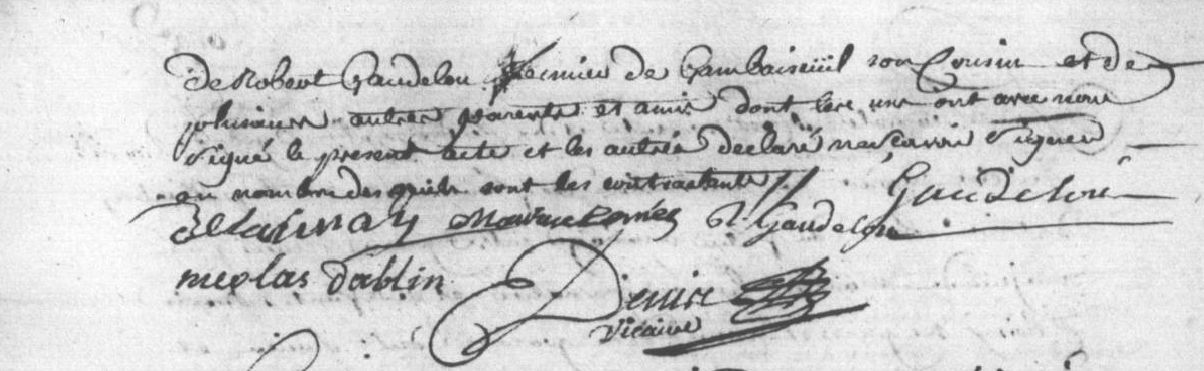 de Robert Gaudelou fermier de Gambaiseüil son Cousin et de
plusieurs autres parents et amis dont les uns ont avec nous
Signé le present acte et les autres declaré ne sçavoir Signer
au nombre desquels sont les contractants //
Gaudelou
Delaunay R. Gaudelou
nicolas dablin Denise
Vicaire